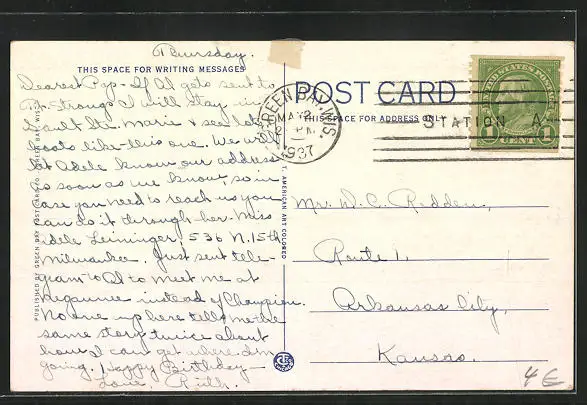 Thursday.
THIS SPACE FOR WRITING MESSAGES
Dearest Pip - If Al gets sent to
Ft. Strong I will stay in
Sault Ste. Marie & see lots of
boats like this one. We will
let Adele know our address
as soon as we know, so in
case you need to reach us you
can do it through her. Miss
Adele Leininger, 536 N. 15th
Milwaukee. Just sent tele-
gram to Al to meet me at
Negaunee instead of Champion.
No one up here tells me the
same story twice about
how I can get where I'm
going. Happy Birthday -
Love, Ruth.
POST CARD
THIS SPACE FOR ADDRESS ONLY
GREEN BAY, WIS.
MAY
2 PM
1937
STATION A
UNITED STATES POSTAGE
1 CENT 1
Mrs. W. C. Redden,
Route 1,
Arkansas City,
Kansas.
AMERICAN ART COLORED
PUBLISHED BY GREEN BAY POST CARD CO., GREEN BAY, WIS.
4E